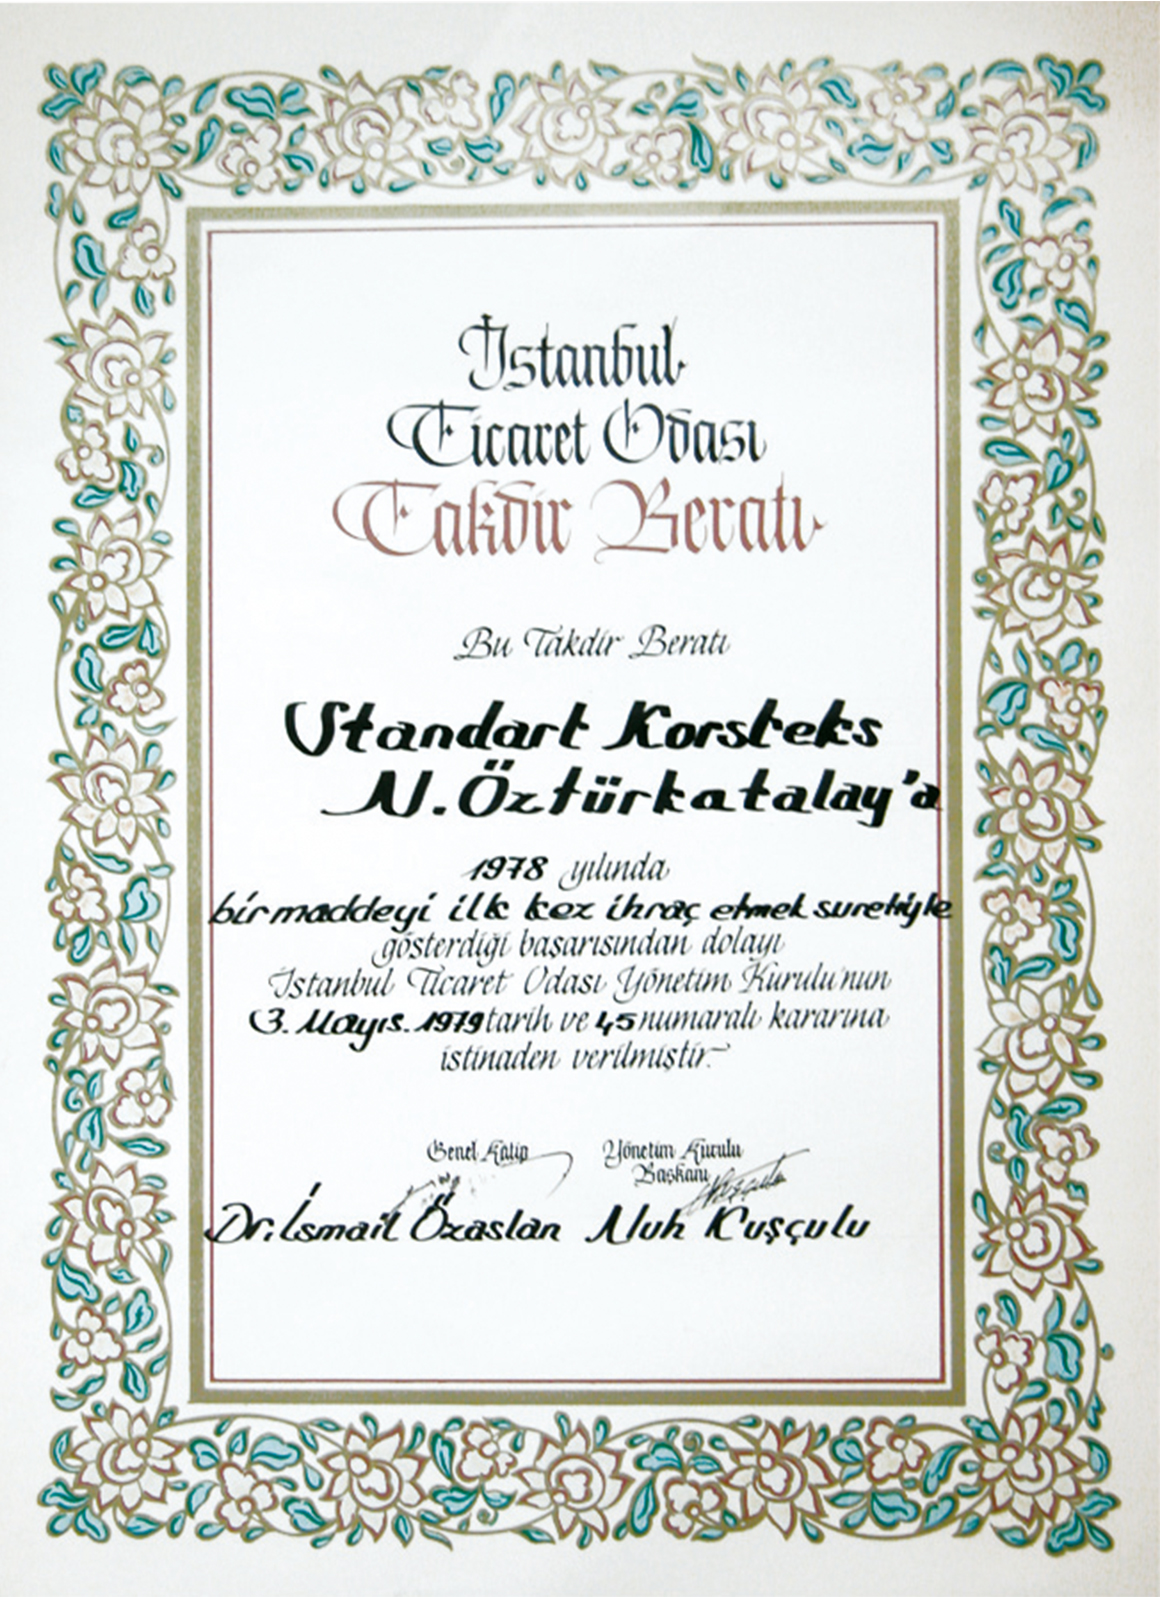 İstanbul
Ticaret Odası
Takdir Beratı
Bu Takdir Beratı
Standart Korsteks
N. Öztürkatalay'a
1978 yılında
bir maddeyi ilk kez ihraç etmek suretiyle
gösterdiği başarısından dolayı
İstanbul Ticaret Odası Yönetim Kurulu'nun
3. Mayıs. 1979 tarih ve 45 numaralı kararına
istinaden verilmiştir.
Genel Katip
Dr. İsmail Özaslan
Yönetim Kurulu
Başkanı
Nuh Kuşçulu